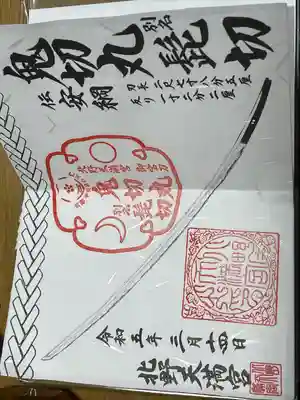 鬼切丸 別名 髭切
伝 安綱
刃長 二尺七寸八分五厘
反り 一寸二分二厘
北野天満宮 御宝刀
鬼切丸
別名 髭切
令和五年三月十四日
北野天満宮